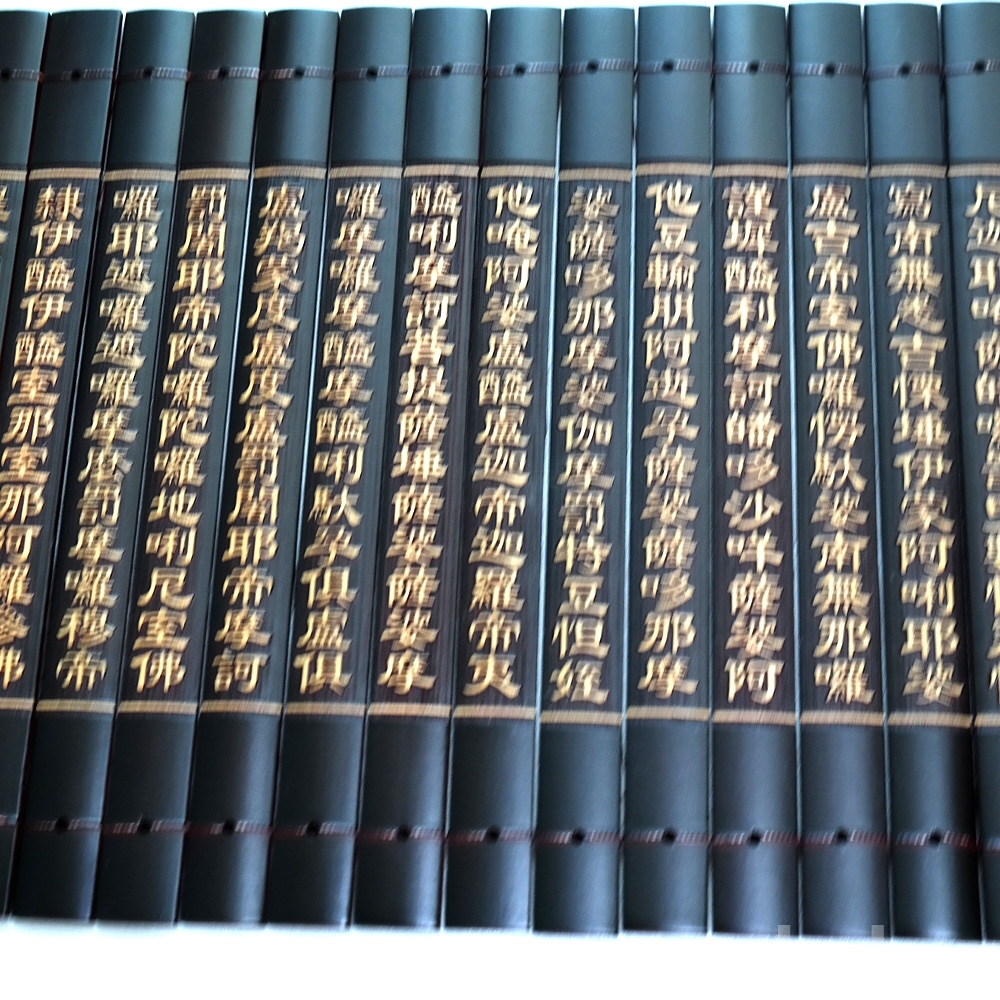 寫南無悉吉慄埵伊蒙阿唎耶婆
盧吉帝室佛囉愣馱婆南無那囉
謹墀醯利摩訶皤哆沙咩薩婆阿
他豆輸朋阿逝孕薩婆薩哆那摩
婆薩哆那摩婆伽摩罰特豆怛姪
他唵阿婆盧醯盧迦帝迦羅帝夷
醯唎摩訶菩提薩埵薩婆薩婆摩
囉摩囉摩醯摩醯唎馱孕俱盧俱
盧羯蒙度盧度盧罰闍耶帝摩訶
罰闍耶帝陀囉陀囉地唎尼室佛
囉耶遮囉遮囉摩麼罰摩囉穆帝
隸伊醯伊醯室那室那阿羅參佛